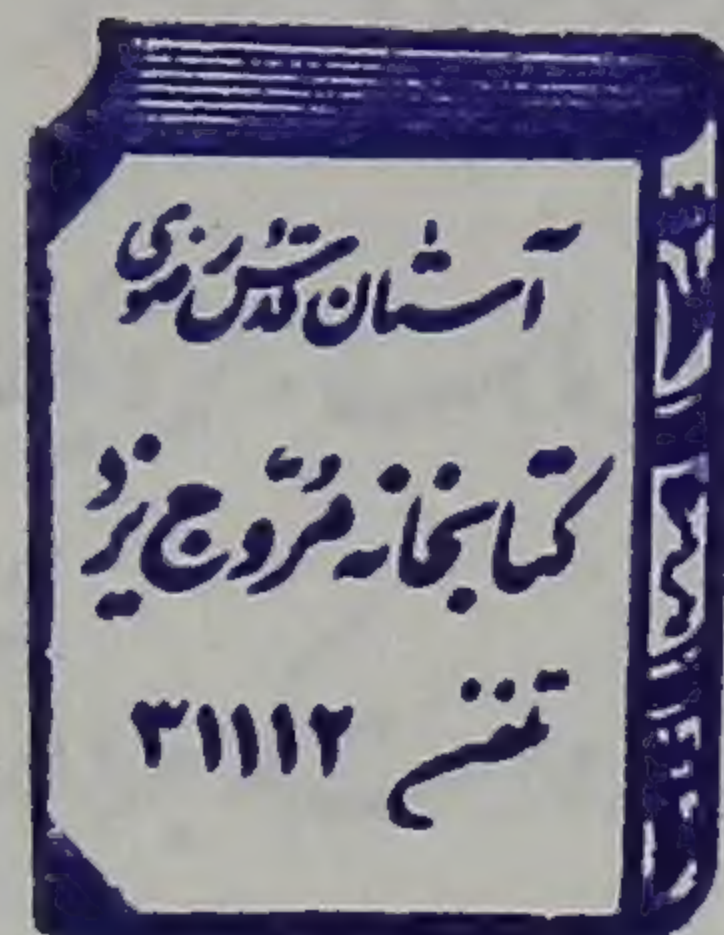 آستان قدس رضوی
کتابخانه مروّج یزد
تلفن ۳۱۱۱۲